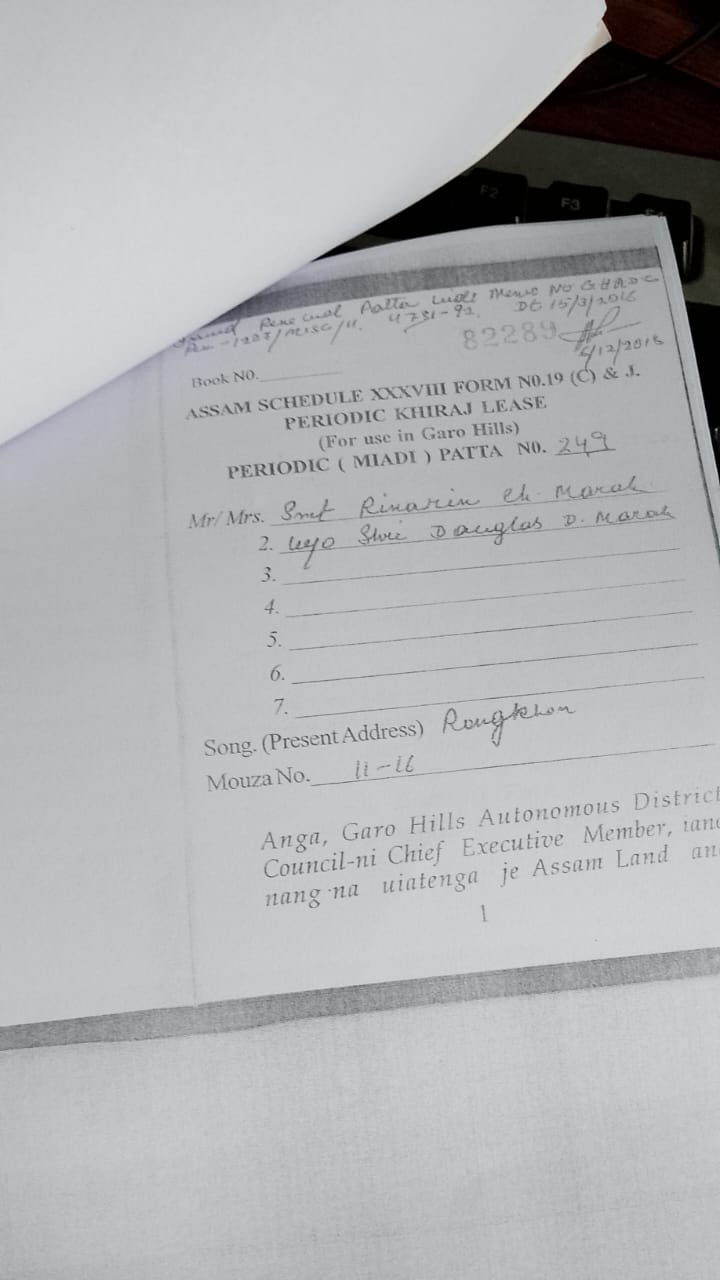 F2
F3
Renewal Patta vide Memo NO GHADC
Rev-1207/Misc/11. 4731-92. Dt 15/3/2016
82289
6/12/2018
Book NO.
ASSAM SCHEDULE XXXVIII FORM N0.19 (C) & J.
PERIODIC KHIRAJ LEASE
(For use in Garo Hills)
PERIODIC ( MIADI ) PATTA N0. 249
Mr/ Mrs. Smt Rinarin Ch. Marak
2. Shri Douglas D. Marak
3.
4.
5.
6.
7.
Song. (Present Address) Rongkhon
Mouza No. II-16
Anga, Garo Hills Autonomous District
Council-ni Chief Executive Member, iano
nang·na uiatenga je Assam Land an
1